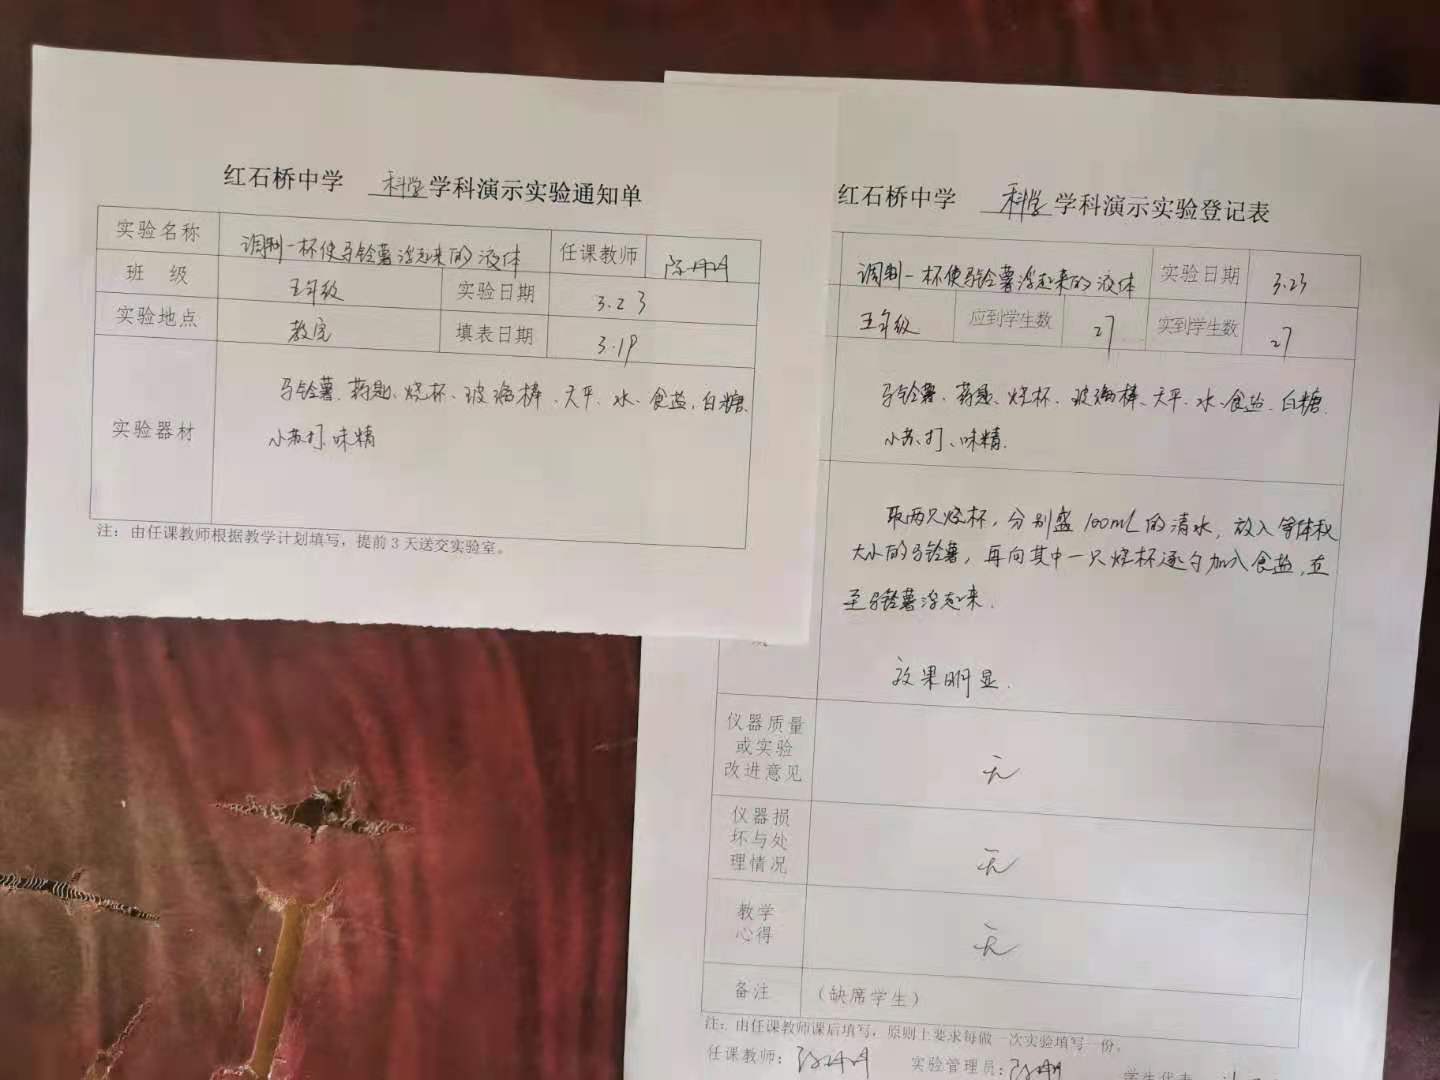 红石桥中学 科学学科演示实验通知单
实验名称 调制一杯使马铃薯浮起来的液体 任课教师
班 级 五年级 实验日期 3.23
实验地点 教室 填表日期 3.19
实验器材
马铃薯、药匙、烧杯、玻璃棒、天平、水、食盐、白糖、
小苏打、味精
注：由任课教师根据教学计划填写，提前3天送交实验室。
红石桥中学 科学学科演示实验登记表
调制一杯使马铃薯浮起来的液体 实验日期 3.23
五年级 应到学生数 27 实到学生数 27
马铃薯、药匙、烧杯、玻璃棒、天平、水、食盐、白糖、
小苏打、味精.
取两只烧杯，分别盛100mL的清水，放入等体积
大小的马铃薯，再向其中一只烧杯逐勺加入食盐，直
至马铃薯浮起来.
效果明显.
仪器质量
或实验
改进意见
无
仪器损
坏与处
理情况
无
教学
心得
无
备注 （缺席学生）
注：由任课教师课后填写，原则上要求每做一次实验填写一份。
任课教师： 实验管理员： 学生代表